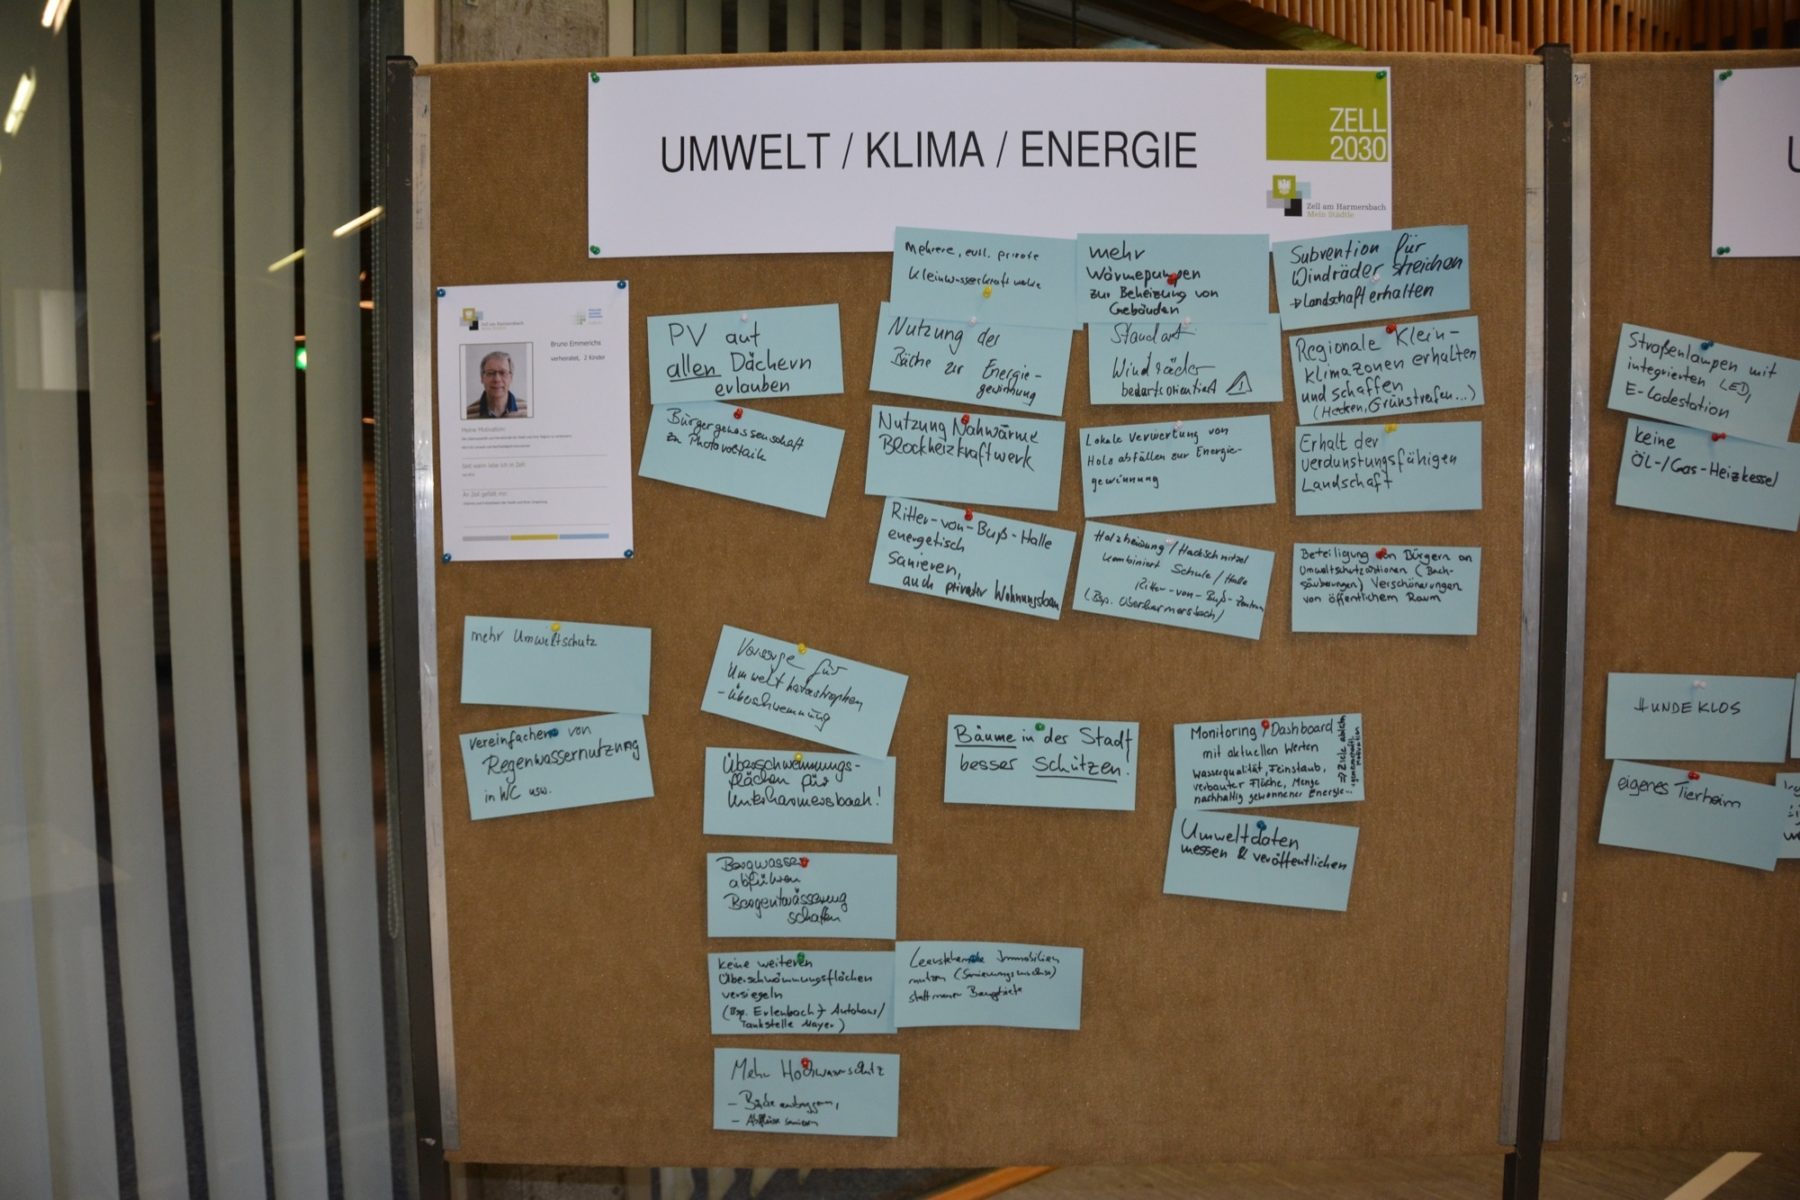 UMWELT / KLIMA / ENERGIE
ZELL
2030
Zell am Harmersbach
Mein Städtle
Zell am Harmersbach
Bruno Emmerichs
verheiratet, 2 Kinder
Meine Motivation:
An Zell gefällt mir:
PV auf
allen Dächern
erlauben
Bürgergenossenschaft
zu Photovoltaik
Mehrere, evtl. private
Kleinwasserkraftwerke
Nutzung der
Bäche zur Energie-
gewinnung
Nutzung Nahwärme
Blockheizkraftwerk
Ritter-von-Buß-Halle
energetisch
sanieren,
auch privater Wohnungsbau
mehr
Wärmepumpen
zur Beheizung von
Gebäuden
Standort
Windräder
bedarfsorientiert
Lokale Verwertung von
Holzabfällen zur Energie-
gewinnung
Holzheizung/Hackschnitzel
kombiniert Schule/Halle
Ritter-von-Buß-Zentrum
(Bsp. Oberharmersbach)
Subvention für
Windräder streichen
→ Landschaft erhalten
Regionale Klein-
klimazonen erhalten
und schaffen
(Hecken, Grünstreifen...)
Erhalt der
verdunstungsfähigen
Landschaft
Beteiligung von Bürgern an
Umweltschutzaktionen (Bach-
säuberungen) Verschönerungen
von öffentlichem Raum
mehr Umweltschutz
vereinfachen von
Regenwassernutzung
in WC usw.
Vorsorge für
Umweltkatastrophen
- Überschwemmung
Überschwemmungs-
flächen für
Unterharmersbach!
Bergwasser
abführen
Bergentwässerung
schaffen
keine weiteren
Überschwemmungsflächen
versiegeln
(Bsp. Erlenbach → Autohaus/
Tankstelle Mayer)
Leerstehende Immobilien
nutzen
statt neuer
Mehr Hochwasserschutz
- Bäche ausbaggern,
Bäume in der Stadt
besser Schützen.
Monitoring, Dashboard
mit aktuellen Werten
Wasserqualität, Feinstaub,
verbauter Fläche, Menge
nachhaltig gewonnener Energie...
⇒ Ziele ableiten
Motivation
Umweltdaten
messen & veröffentlichen
U
Straßenlampen mit
integrierten LED,
E-Ladestation
keine
Öl-/Gas-Heizkessel
HUNDEKLOS
eigenes Tierheim